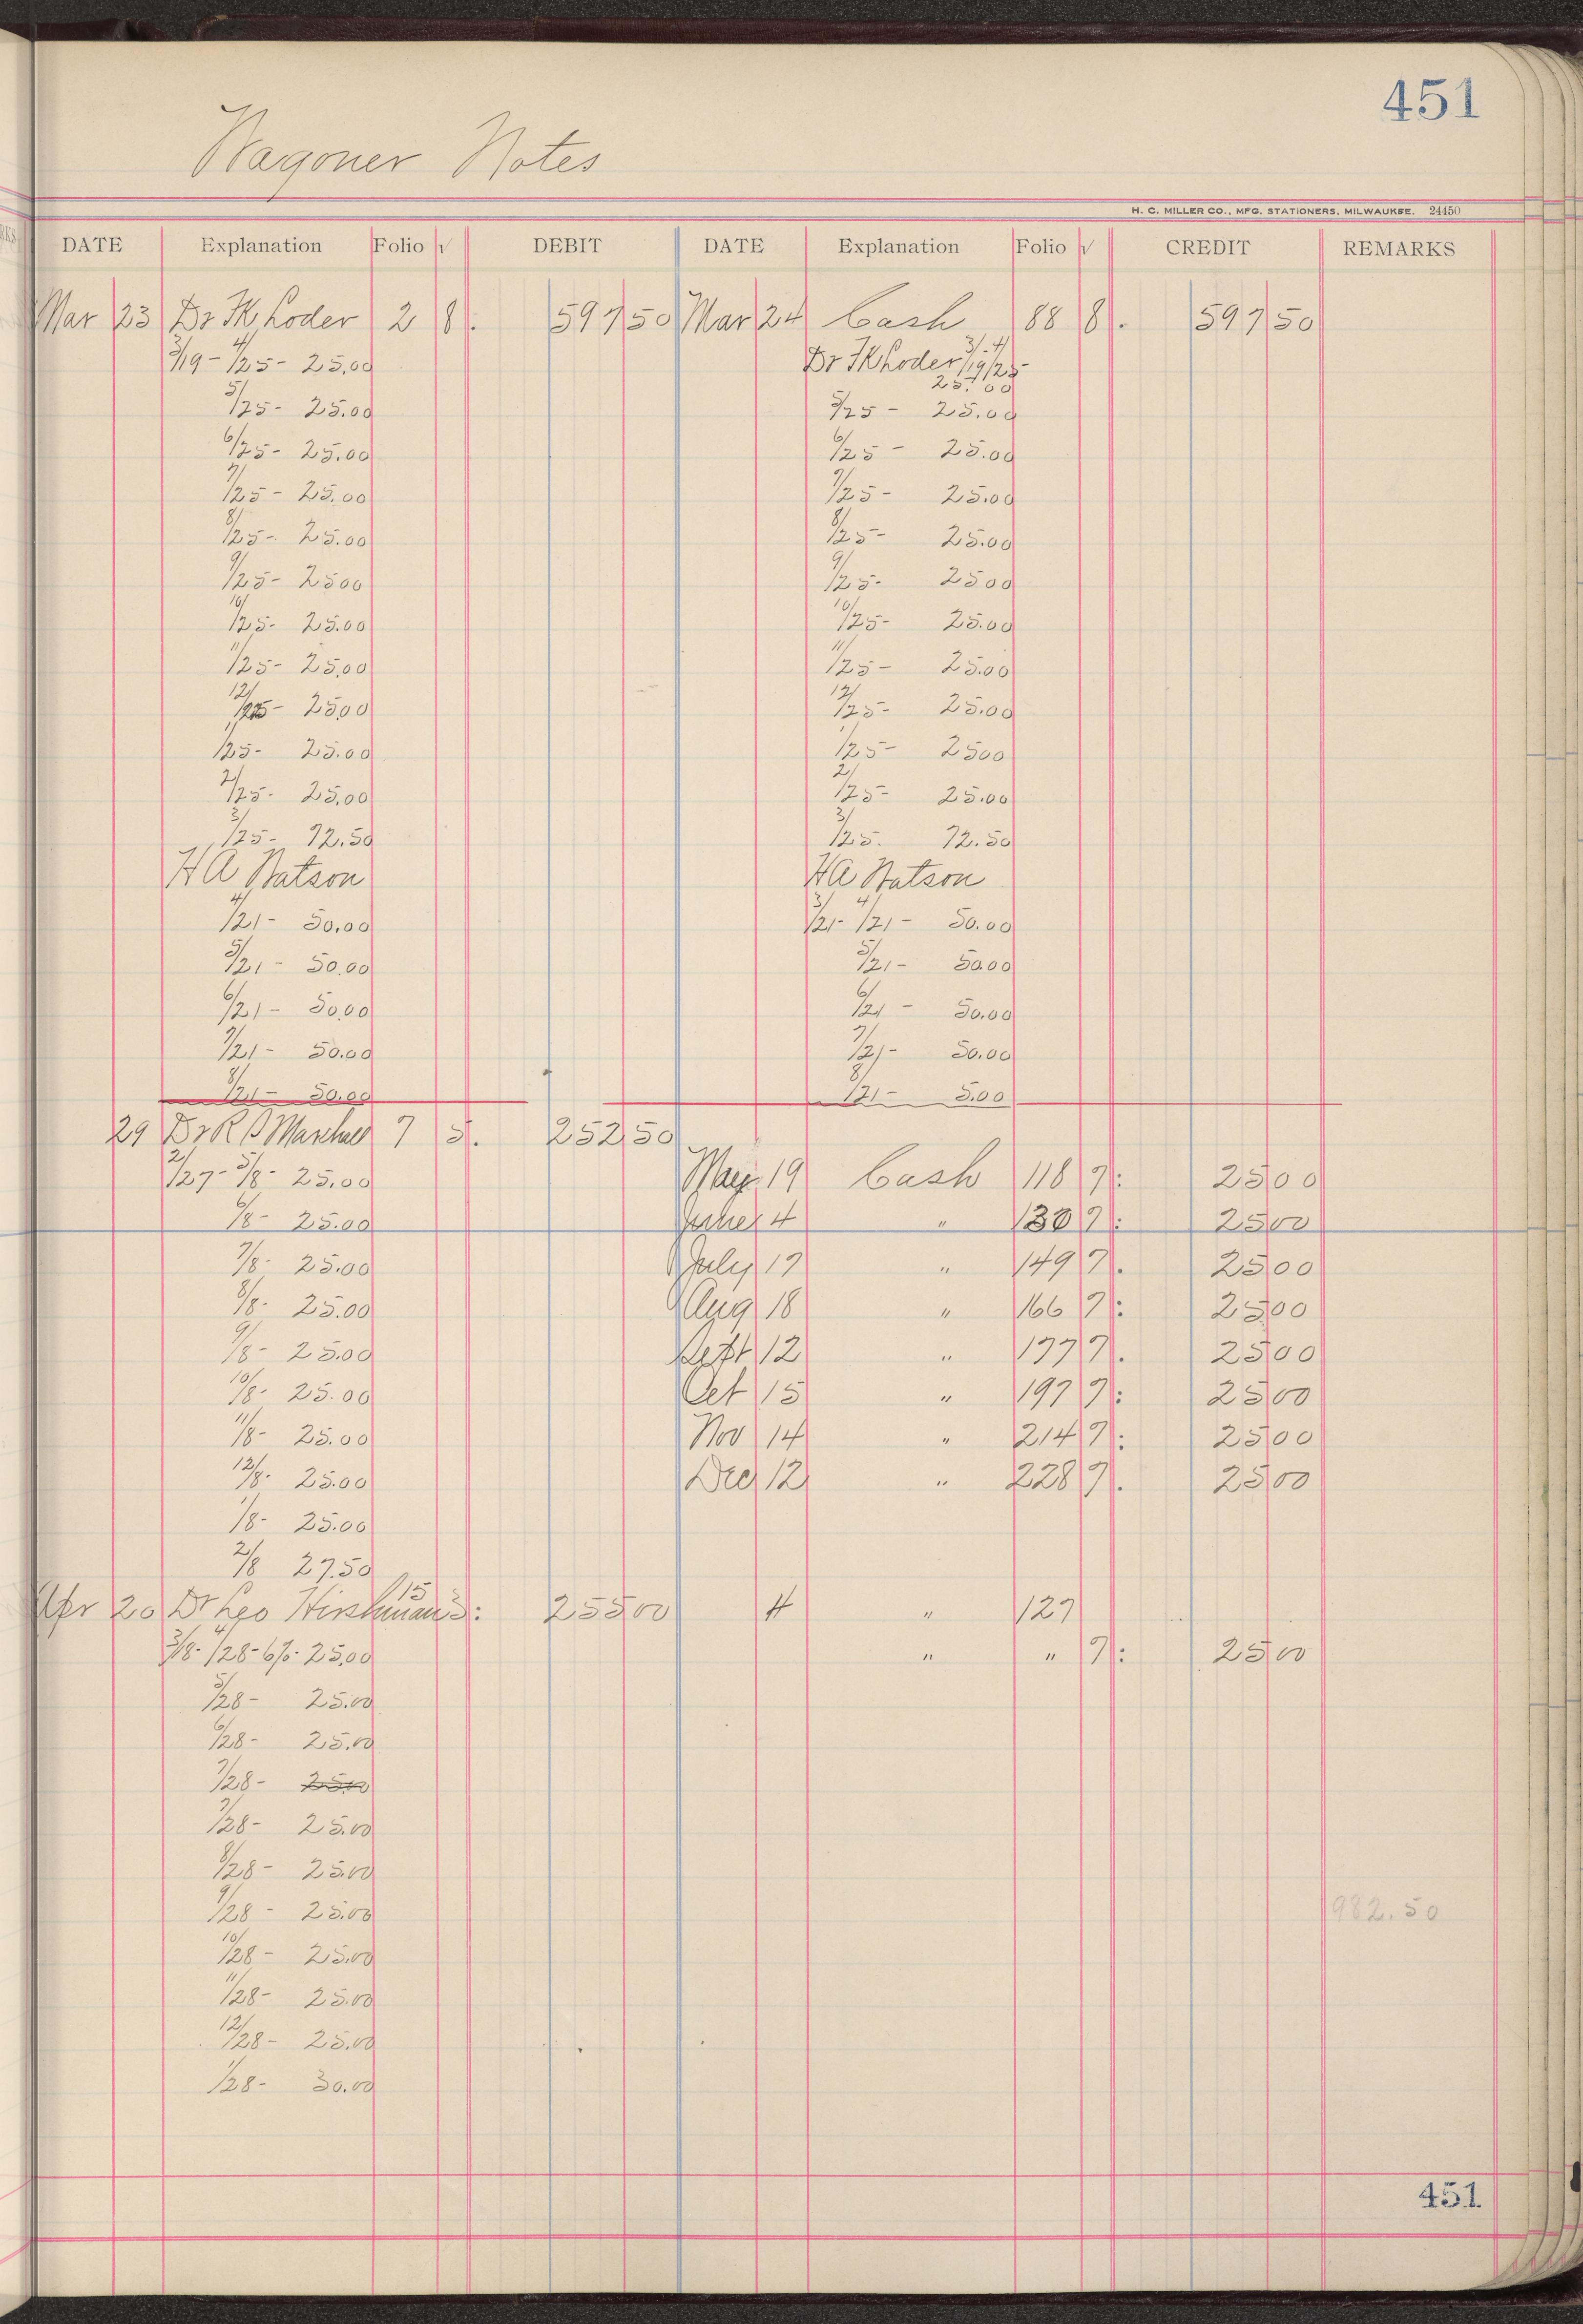 451
Wagoner Notes
H. C. MILLER CO., MFG. STATIONERS, MILWAUKEE. 24450
DATE Explanation Folio √ DEBIT DATE Explanation Folio √ CREDIT REMARKS
Mar 23 Dr FK Loder 2 8. 597 50 Mar 24 Cash 88 8. 597 50
3/19 - 4/25 - 25.00 Dr FK Loder 3/19 4/25 -
25.00
5/25 - 25.00 5/25 - 25.00
6/25 - 25.00 6/25 - 25.00
7/25 - 25.00 7/25 - 25.00
8/25 - 25.00 8/25 - 25.00
9/25 - 2500 9/25 - 2500
10/25 - 25.00 10/25 - 25.00
11/25 - 25.00 11/25 - 25.00
12/25 - 25.00 12/25 - 25.00
1/25 - 25.00 1/25 - 2500
2/25 - 25.00 2/25 - 25.00
3/25 - 72.50 3/25. 72.50
HA Watson HA Watson
4/21 - 50.00 3/21 - 4/21 - 50.00
5/21 - 50.00 5/21 - 50.00
6/21 - 50.00 6/21 - 50.00
7/21 - 50.00 7/21 - 50.00
8/21 - 50.00 8/21 - 5.00
29 Dr R B 7 5. 252 50
2/27 - 5/8 - 25.00 May 19 Cash 118 7: 25 00
6/8 - 25.00 June 4 " 130 7: 25 00
7/8 - 25.00 July 17 " 149 7. 25 00
8/8 - 25.00 Aug 18 " 166 7: 25 00
9/8 - 25.00 Sept 12 " 177 7. 25 00
10/8 - 25.00 Oct 15 " 197 7: 25 00
11/8 - 25.00 Nov 14 " 214 7: 25 00
12/8 - 25.00 Dec 12 " 228 7. 25 00
1/8 - 25.00
2/8 27.50
Apr 20 Dr Leo Hirshman 15 3: 255 00 4 " 127
3/8 - 4/28 - 6% - 25.00 " " 7: 25 00
5/28 - 25.00
6/28 - 25.00
7/28 - 25.00
7/28 - 25.00
8/28 - 25.00
9/28 - 25.00 982.50
10/28 - 25.00
11/28 - 25.00
12/28 - 25.00
1/28 - 30.00
451